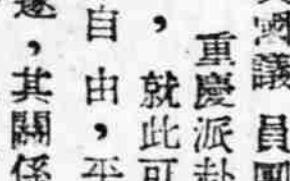 議員團
重慶派赴
，就此可
自由，平
，其關係